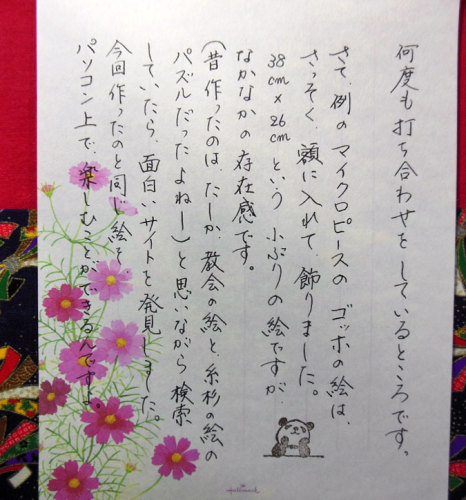 何度も打ち合わせをしているところです。
さて、例のマイクロピースのゴッホの絵は、
さっそく、額に入れて、飾りました。
38cm×26cmという小ぶりの絵ですが、
なかなかの存在感です。
(昔作ったのは、たしか、教会の絵と、糸杉の絵の
パズルだったよねー)と思いながら検索
していたら、面白いサイトを発見しました。
今回作ったのと同じ絵を、
パソコン上で、楽しむことができるんですよ。
Hallmark